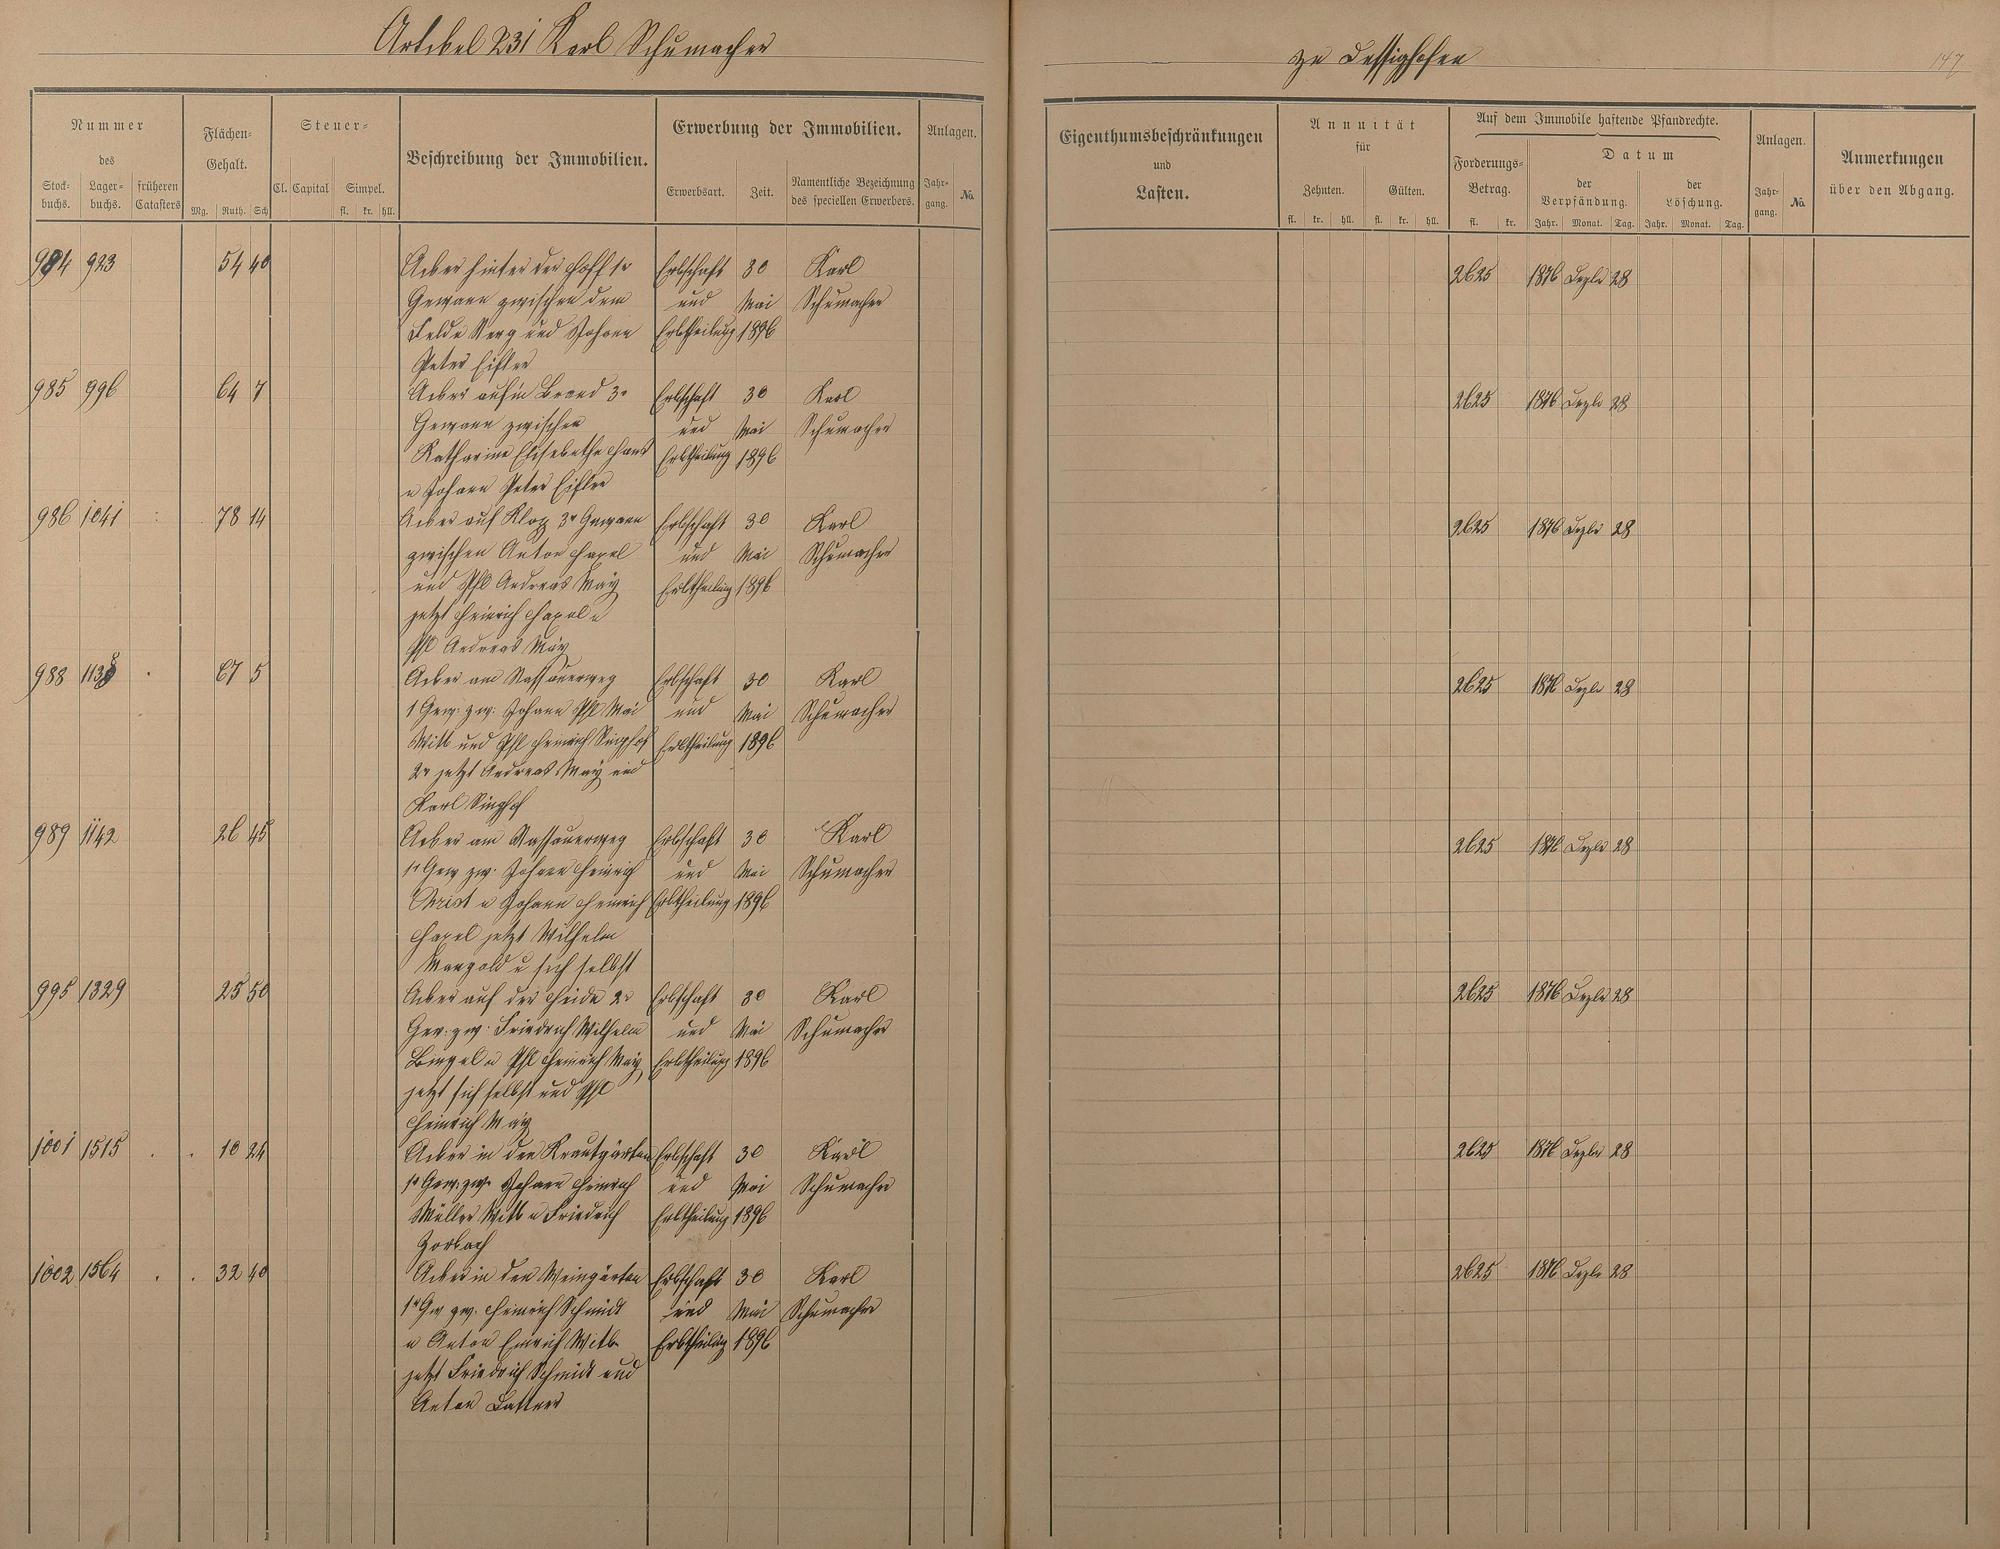 Artikel 231 Karl Schumacher
zu Dessighofen
147
Nummer
des
Stock-
buchs.
Lager-
buchs.
früheren
Catasters
Flächen-
Gehalt.
Mg. Ruth. Sch
Steuer-
Cl. Capital Simpel.
fl. kr. hll.
Beschreibung der Immobilien.
Erwerbung der Immobilien.
Erwerbsart. Zeit.
Namentliche Bezeichnung
des speciellen Erwerbers.
Anlagen.
Jahr-
gang.
No.
Eigenthumsbeschränkungen
und
Lasten.
Annuität
für
Zehnten. Gülten.
fl. kr. hll. fl. kr. hll.
Auf dem Immobile haftende Pfandrechte.
Forderungs-
Betrag.
fl. kr.
Datum
der
Verpfändung.
der
Löschung.
Jahr. Monat. Tag. Jahr. Monat. Tag.
Anlagen.
Jahr-
gang.
No.
Anmerkungen
über den Abgang.
984 923 54 40 Acker hinter der Hoff 1r Erbschaft 30 Karl 2625 1876 Dezbr 28
Gewann zwischen dem und Mai Schumacher
Felde Weg und Johann Erbtheilung 1896
Peter Eifler
985 996 64 7 Acker auf'm Brand 3r Erbschaft 30 Karl 2625 1876 Dezbr 28
Gewann zwischen und Mai Schumacher
Katharine Elisabethe Haus Erbtheilung 1896
u Johann Peter Eifler
986 1041 78 14 Acker auf Klopp 3r Gewann Erbschaft 30 Karl 2625 1876 Dezbr 28
zwischen Anton Hapel und Mai Schumacher
und Phl Andreas May Erbtheilung 1896
jetzt Heinrich Hapel u
Phl Andreas May
988 1138 67 5 Acker am Nassauerweg Erbschaft 30 Karl 2625 1876 Dezbr 28
1 Gew: zw: Johann Phl Mai und Mai Schumacher
Witb und Phl Heinrich Singhof Erbtheilung 1896
2r jetzt Andreas May und
Karl Singhof
989 1142 26 45 Acker am Nassauerweg Erbschaft 30 Karl 2625 1876 Dezbr 28
1r Gew zw. Johann Heinrich und Mai Schumacher
Christ u Johann Heinrich Erbtheilung 1896
Hapel jetzt Wilhelm
Mangold u sich selbst
995 1329 25 50 Acker auf der Heide 2r Erbschaft 30 Karl 2625 1876 Dezbr 28
Gew: zw: Friedrich Wilhelm und Mai Schumacher
Bingel u Phl Heinrich May Erbtheilung 1896
jetzt sich selbst und Phl
Heinrich May
1001 1515 10 24 Acker in den Krautgärten Erbschaft 30 Karl 2625 1876 Dezbr 28
1r Gew: zw: Johann Heinrich und Mai Schumacher
Müller Witb u Friedrich Erbtheilung 1896
Zorbach
1002 1564 32 40 Acker in den Weingärten Erbschaft 30 Karl 2625 1876 Dezbr 28
1r Gw zw. Heinrich Schmidt und Mai Schumacher
u Anton Emrich Witb Erbtheilung 1896
jetzt Friedrich Schmidt und
Anton